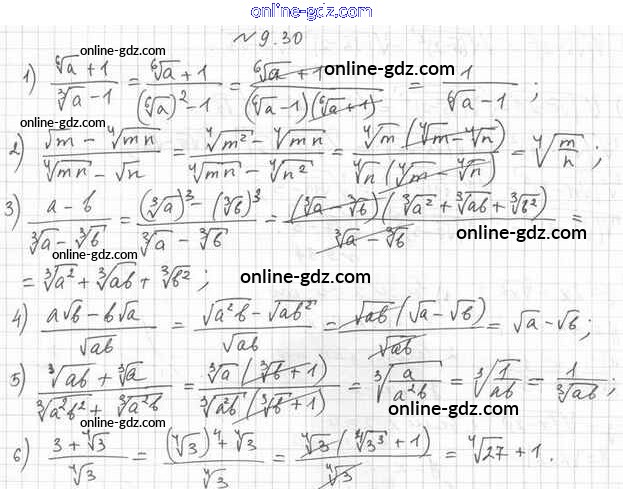 online-gdz.com
№ 9.30
online-gdz.com
1) (⁶√a + 1)/(³√a − 1) = (⁶√a + 1)/((⁶√a)² − 1) = (⁶√a + 1)/((⁶√a − 1)(⁶√a + 1)) = 1/(⁶√a − 1) ;
online-gdz.com
online-gdz.com
2) (√m − ⁴√mn)/(⁴√mn − √n) = (⁴√m² − ⁴√mn)/(⁴√mn − ⁴√n²) = ⁴√m (⁴√m − ⁴√n)/(⁴√n (⁴√m − ⁴√n)) = ⁴√(m/n) ;
online-gdz.com
3) (a − b)/(³√a − ³√b) = ((³√a)³ − (³√b)³)/(³√a − ³√b) = (³√a − ³√b)(³√a² + ³√ab + ³√b²)/(³√a − ³√b) =
online-gdz.com
online-gdz.com
= ³√a² + ³√ab + ³√b² ;
online-gdz.com
4) (a√b − b√a)/√ab = (√a²b − √ab²)/√ab = √ab (√a − √b)/√ab = √a − √b ;
online-gdz.com
5) (³√ab + ³√a)/(³√a²b² + ³√a²b) = ³√a (³√b + 1)/(³√a²b (³√b + 1)) = ³√(a/a²b) = ³√(1/ab) = 1/³√ab ;
online-gdz.com
6) (3 + ⁴√3)/⁴√3 = ((⁴√3)⁴ + ⁴√3)/⁴√3 = ⁴√3 (⁴√3³ + 1)/⁴√3 = ⁴√27 + 1 .
online-gdz.com
online-gdz.com